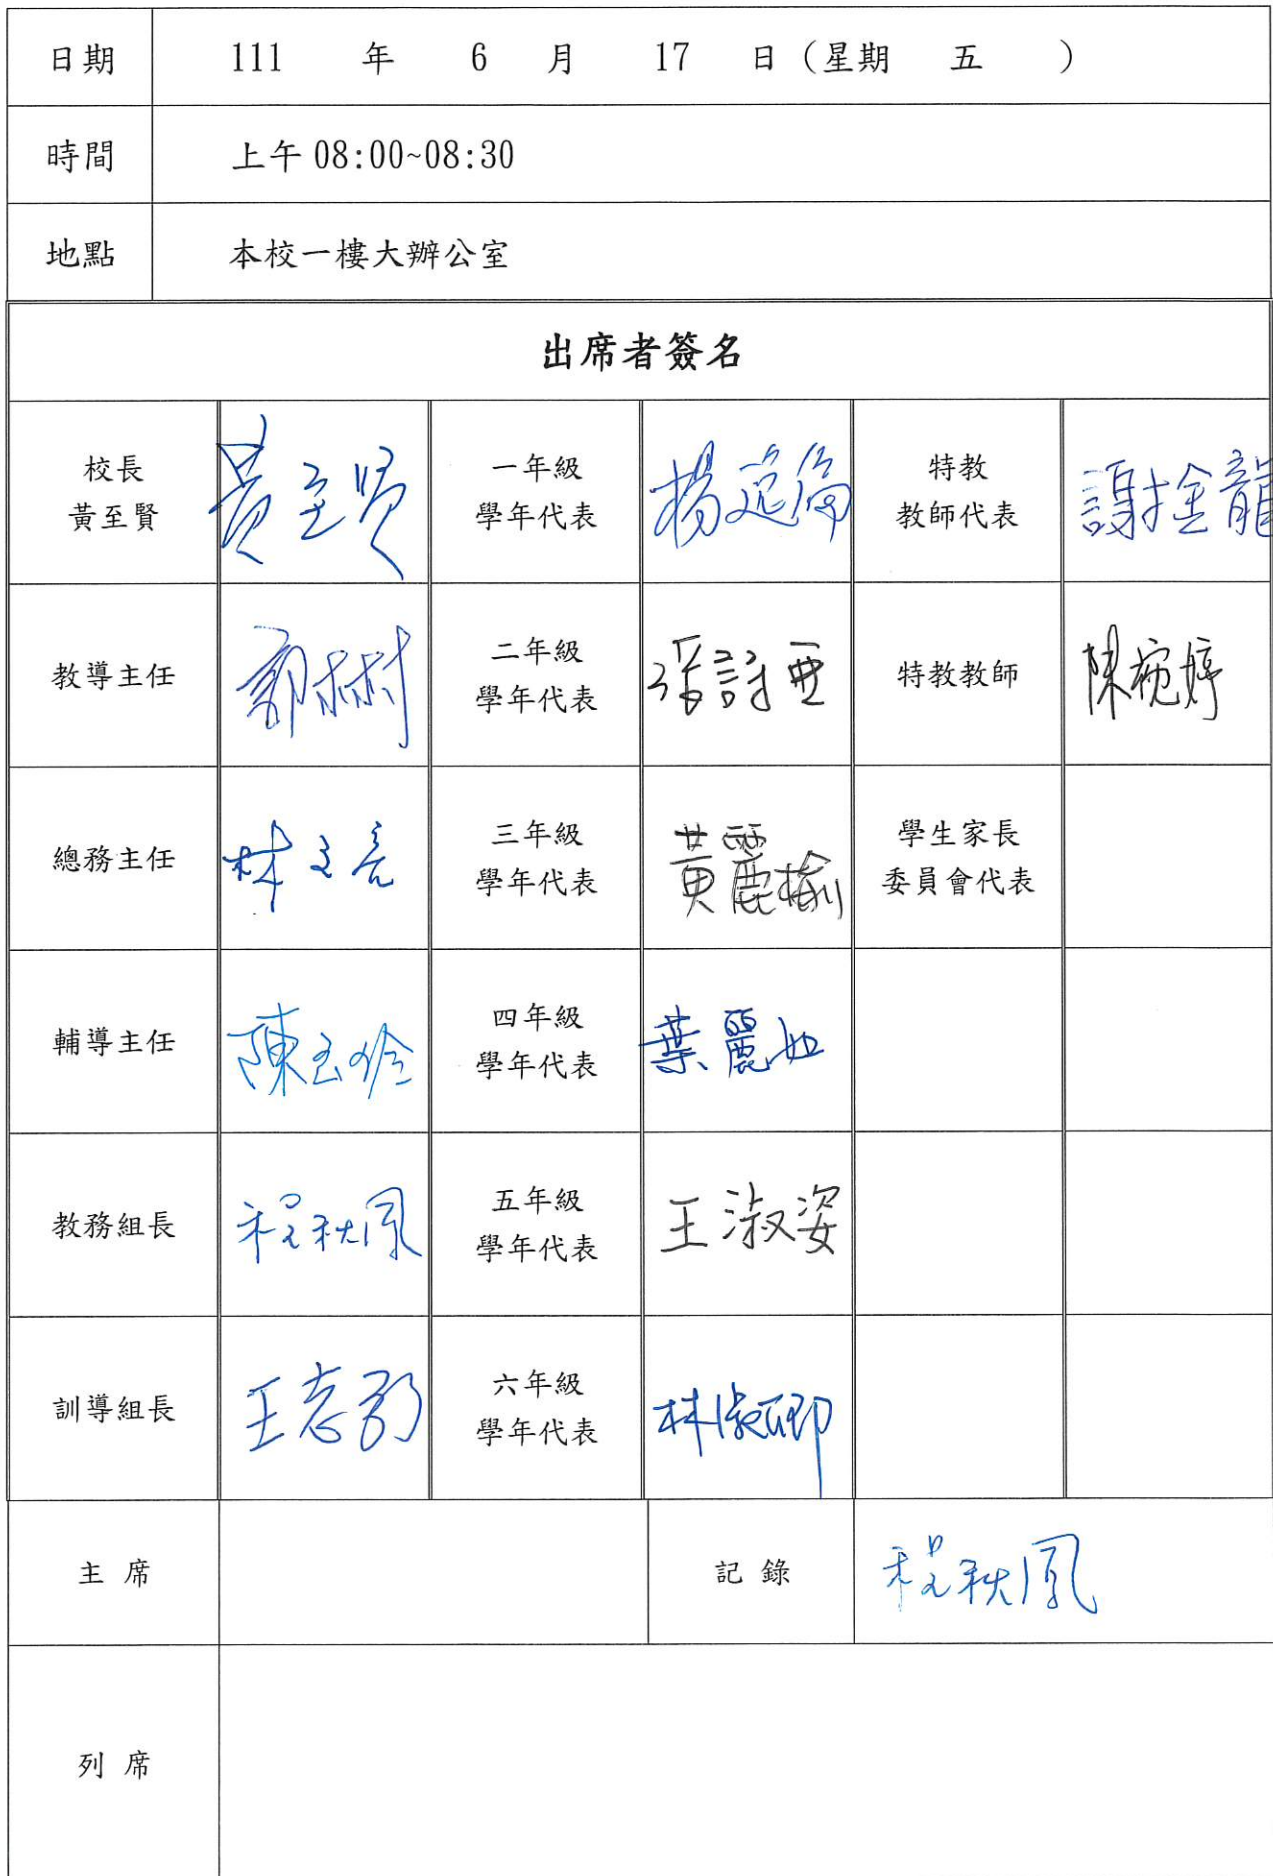 日期 111 年 6 月 17 日（星期 五 ）
時間 上午 08:00~08:30
地點 本校一樓大辦公室
出席者簽名
校長
黃至賢
黃至賢
一年級
學年代表
楊
特教
教師代表
謝金龍
教導主任
郭
二年級
學年代表
特教教師
陳婷
總務主任
林
三年級
學年代表
黃麗榆
學生家長
委員會代表
輔導主任
陳玉玲
四年級
學年代表
葉麗如
教務組長
程秋鳳
五年級
學年代表
王淑姿
訓導組長
王志
六年級
學年代表
林淑卿
主 席
記 錄
程秋鳳
列 席